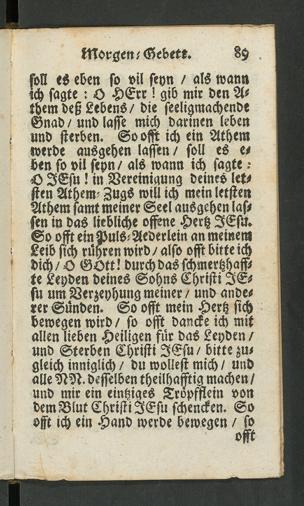 Morgen-Gebett. 89
soll es eben so vil seyn / als wann
ich sagte : O HErr ! gib mir den A-
them deß Lebens / die seeligmachende
Gnad / und lasse mich darinen leben
und sterben. So offt ich ein Athem
werde ausgehen lassen / soll es e-
ben so vil seyn / als wann ich sagte :
O JEsu ! in Vereinigung deines let-
sten Athem-Zugs will ich mein letsten
Athem samt meiner Seel ausgehen las-
sen in das liebliche offene Hertz JEsu.
So offt ein Puls-Aederlein an meinem
Leib sich rühren wird / also offt bitte ich
dich / O GOtt ! durch das schmertzhaff-
te Leyden deines Sohns Christi JE-
su um Verzeyhung meiner / und ande-
rer Sünden. So offt mein Hertz sich
bewegen wird / so offt dancke ich mit
allen lieben Heiligen für das Leyden /
und Sterben Christi JEsu / bitte zu-
gleich inniglich / du wollest mich / und
alle NN. desselben theilhafftig machen /
und mir ein eintziges Tröpfflein von
dem Blut Christi JEsu schencken. So
offt ich ein Hand werde bewegen / so
offt